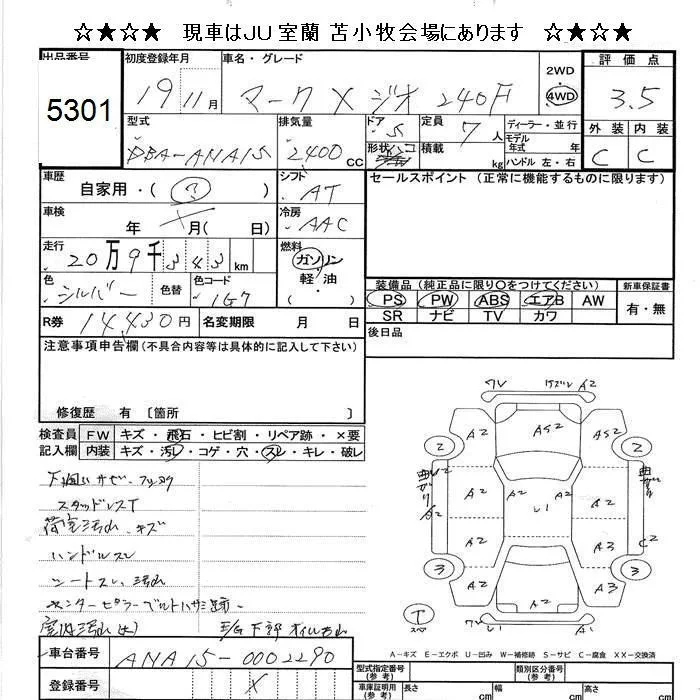 ☆★☆★ 現車はJU室蘭 苫小牧会場にあります ☆★☆★
出品番号 初度登録年月 車名・グレード 2WD 評価点
5301 19 11月 マークXジオ 240F 4WD 3.5
型式 排気量 ドア 定員 ディーラー・並行 外装 内装
DBA-ANA15 2400CC 5 7人 モデル年式 年式 C C
形状 積載 kg ハンドル 左・右
車歴 シフト セールスポイント (正常に機能するものに限ります)
自家用・( ) AT
車検 年 月( 日) 冷房 AAC
走行 20万9千343km 燃料 ガソリン 軽・油
色 シルバー 色替 色コード 1G7
装備品(純正品に限り○をつけてください) 新車保証書
PS PW ABS エアB AW 有・無
SR ナビ TV カワ
R券 14430円 名変期限 月 日 後日品
注意事項申告欄(不具合内容等は具体的に記入して下さい)
修復歴 有 〔箇所 〕
検査員 FW キズ・飛石・ヒビ割・リペア跡・×要
記入欄 内装 キズ・汚レ・コゲ・穴・スレ・キレ・破レ
下廻りサビ・
スタッドレスT
荷室汚れ、キズ
ハンドルスレ
シートスレ 汚れ
センターピラーベルトハサミ跡
室内汚れ(大) E/G下部オイル
ワレ A2
A2 AS2 AS2
2 2
A2 A2 A2
A2 A2 A3 C2
3 3
A2 A2 A3
T
A1
A-キズ E-エクボ U-凹み W-補修跡 S-サビ C-腐食 XX-交換済
車台番号 ANA15-0002290
型式指定番号(参考) 類別区分番号(参考)
登録番号 X
車庫証明用(参考) 長さ cm 幅 cm 高さ cm